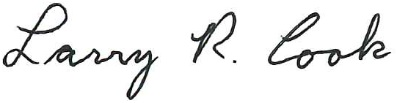 Larry R. Cook